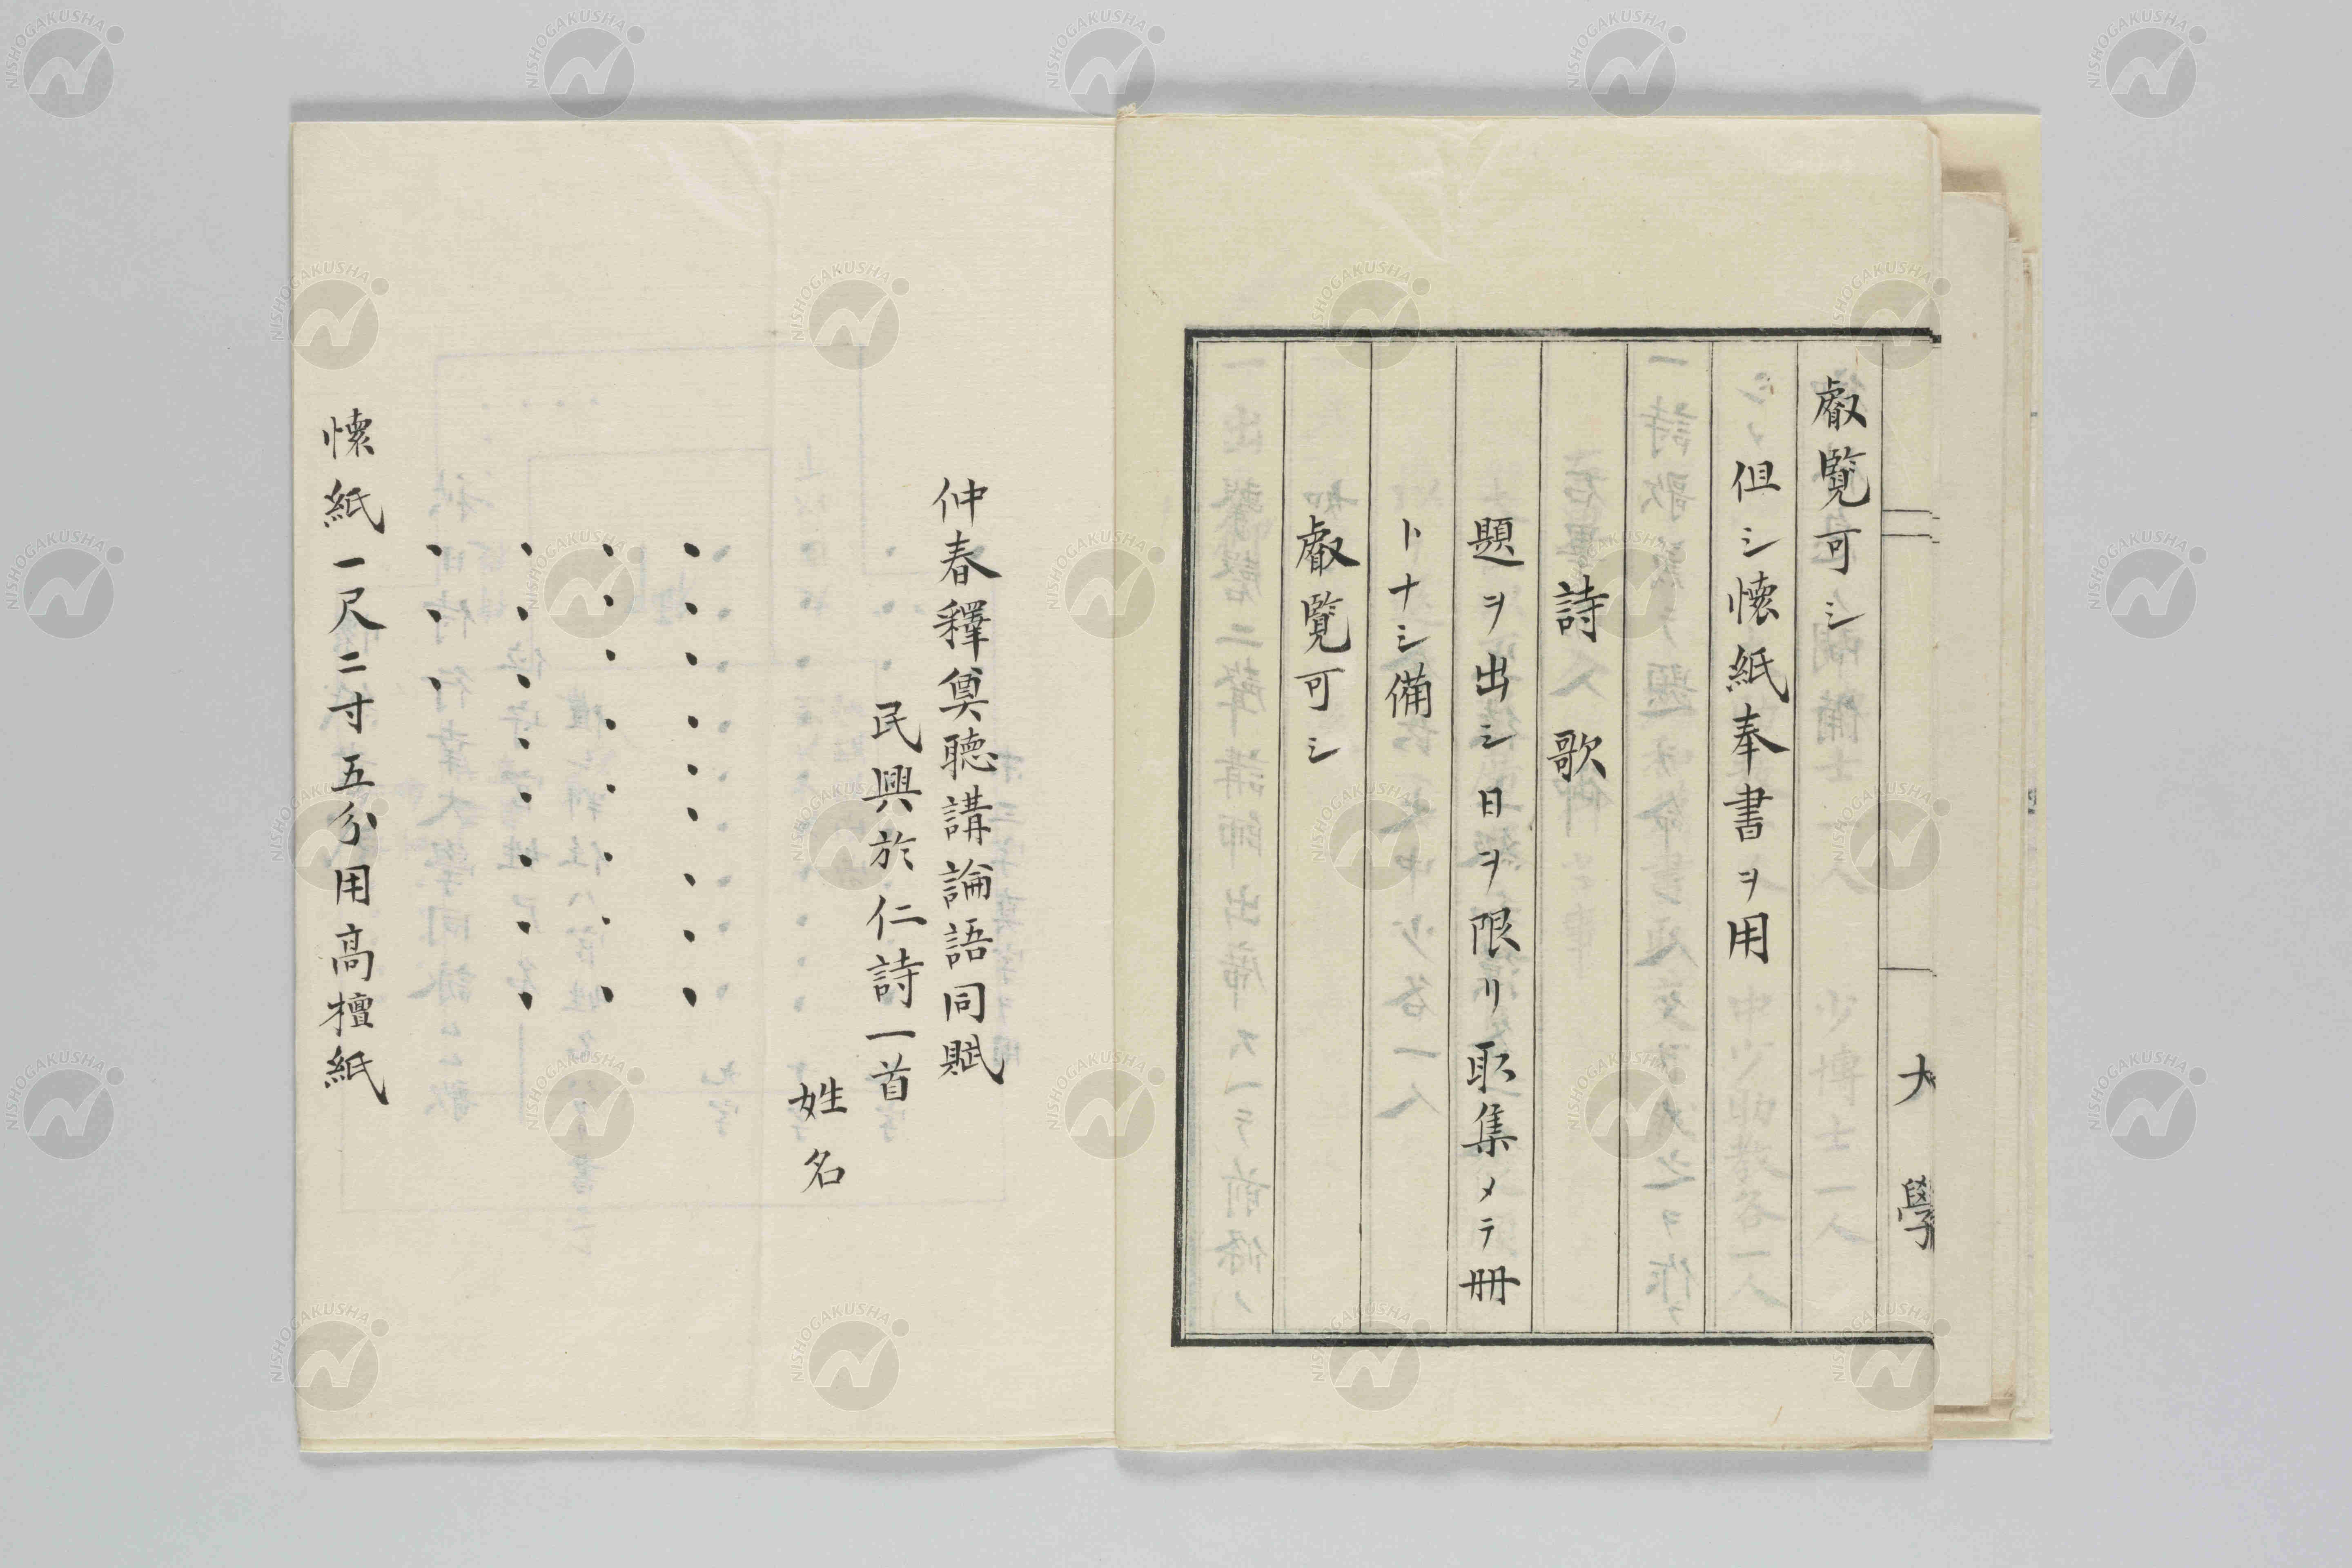 大學
叡覧可シ
但シ懐紙奉書ヲ用
詩歌
題ヲ出シ日ヲ限リ取集メテ冊
トナシ備
叡覧可シ
仲春釋奠聴講論語同賦
民興於仁詩一首
姓名
懐紙一尺二寸五分用高檀紙
NISHOGAKUSHA